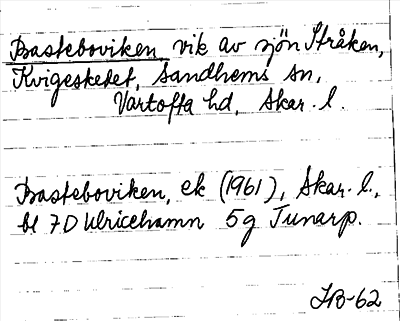 Basteboviken vik av sjön Stråken,
Kvigeskedet, Sandhems sn,
Vartofta hd, Skar. l.
Basteboviken, ek (1961), Skar. l.,
bl 7D Ulricehamn 5g Tunarp.
IB-62